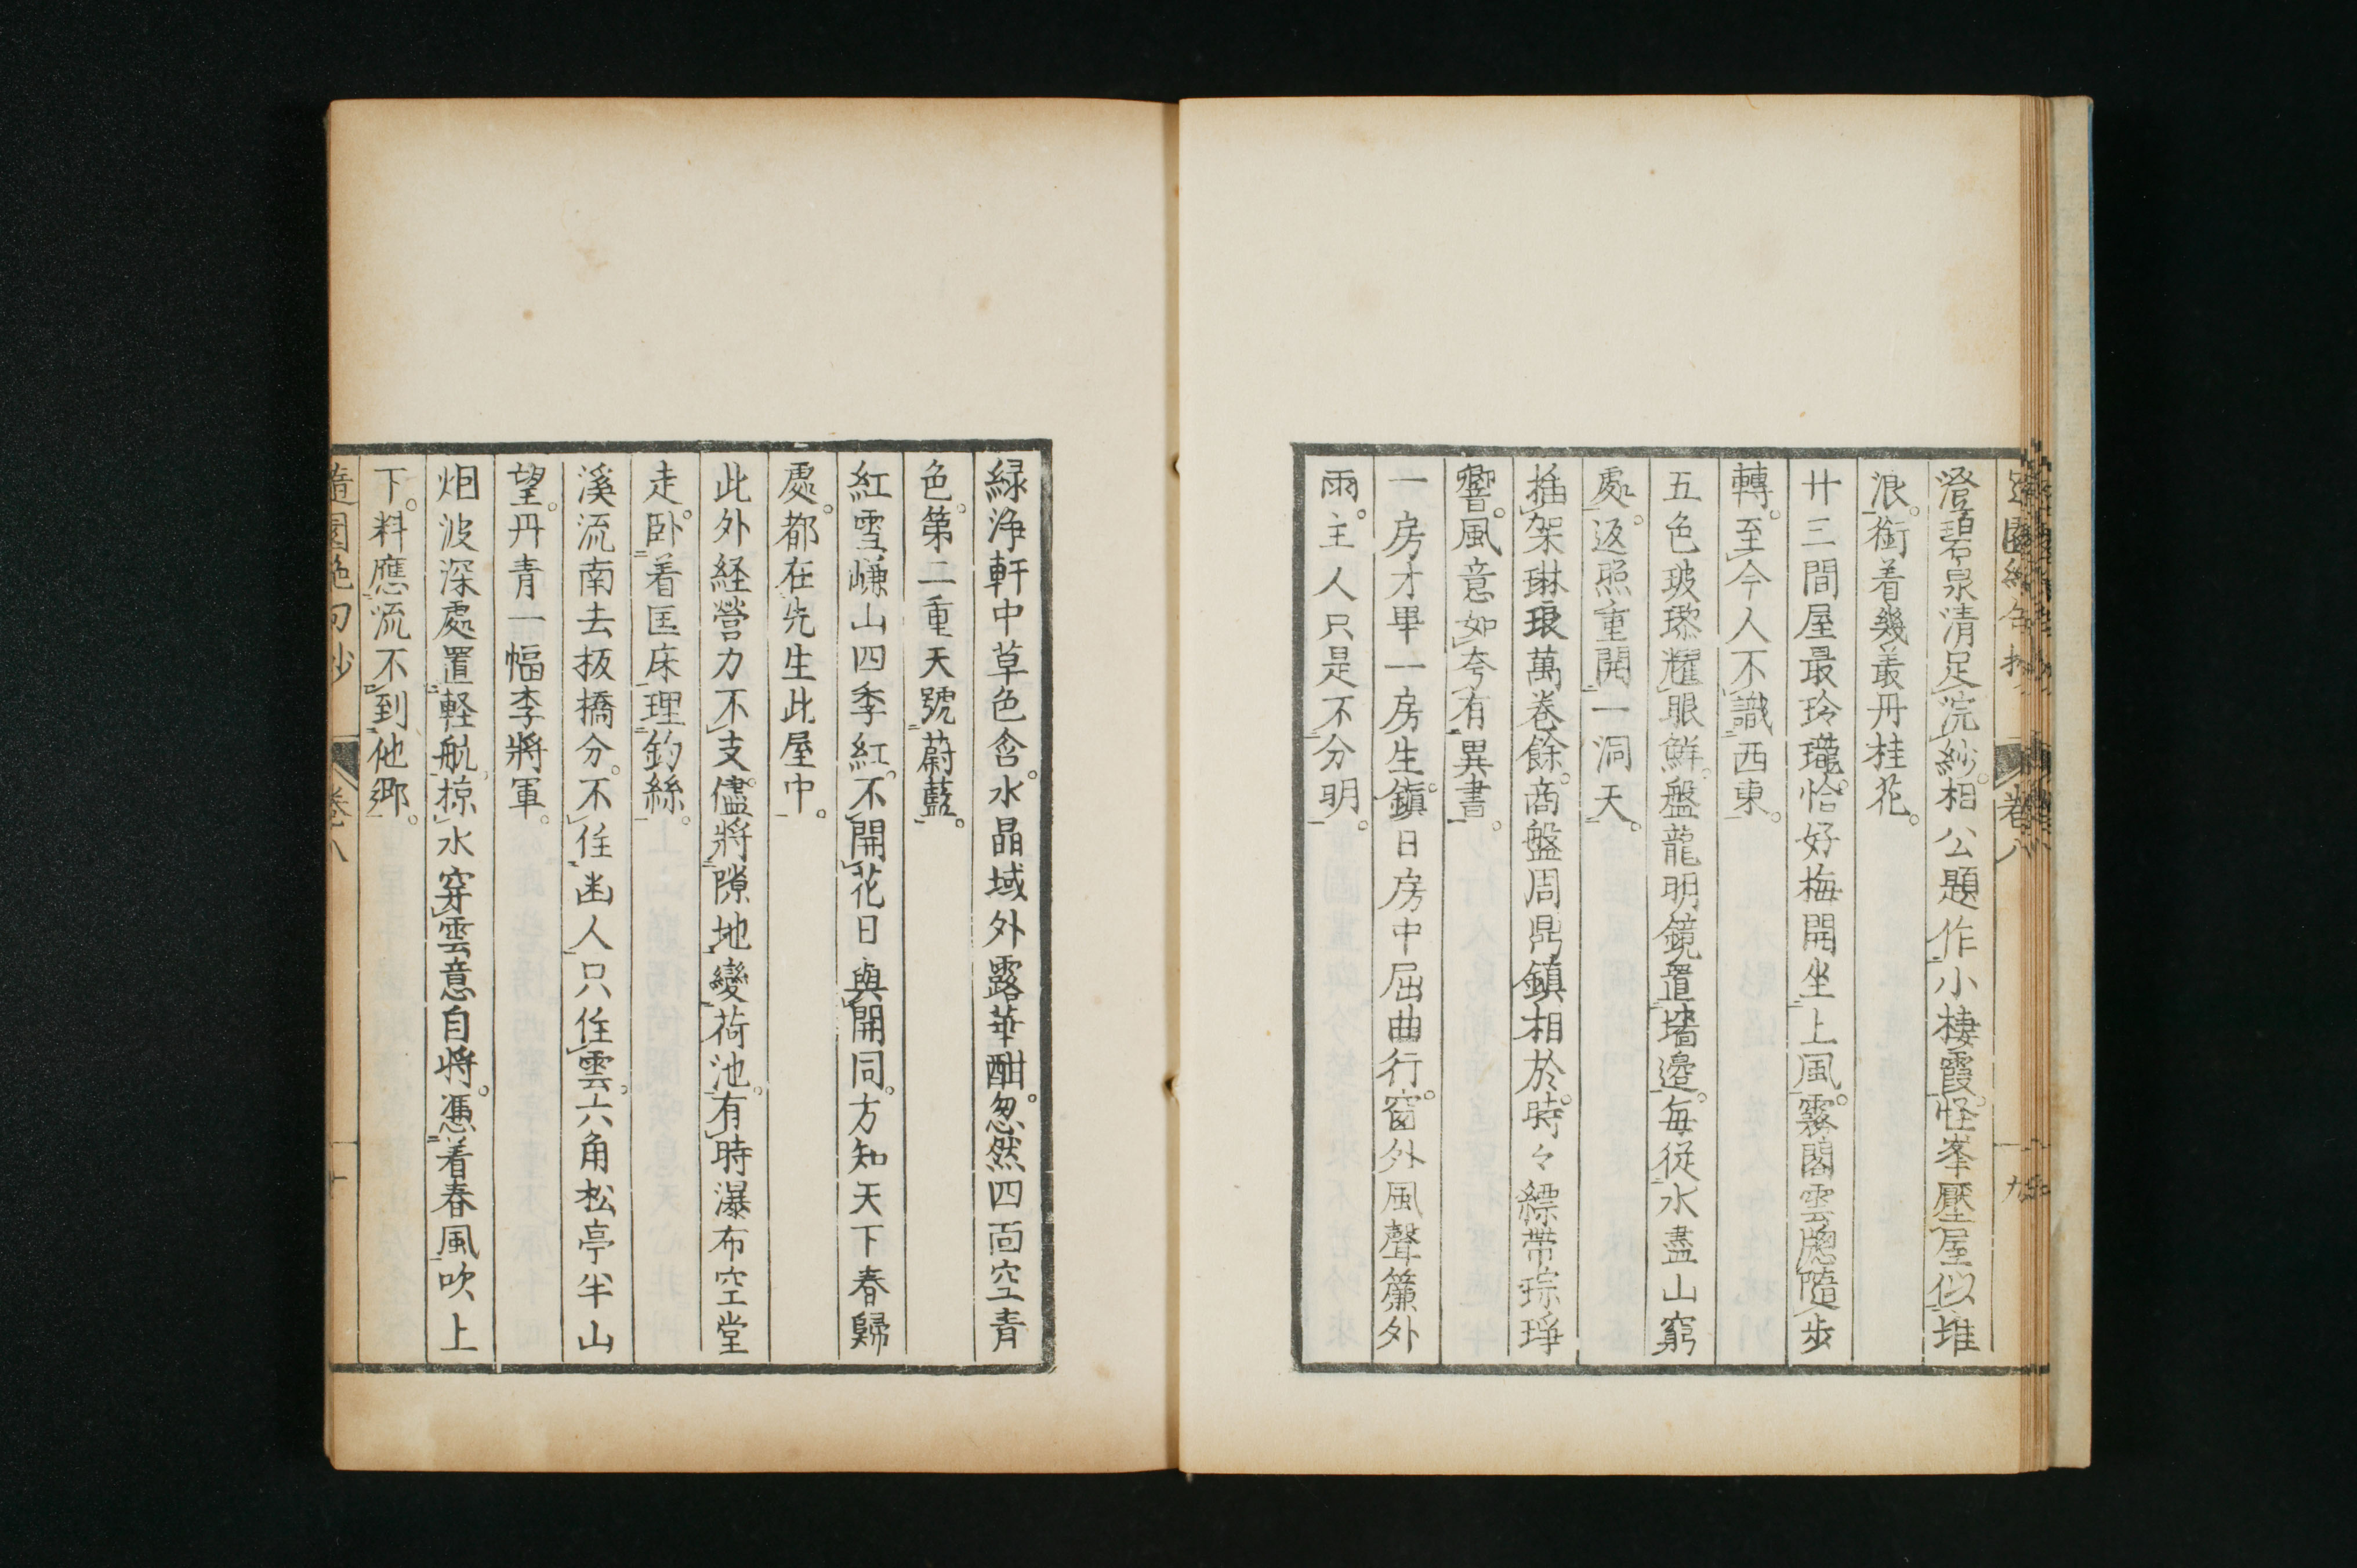 澄碧泉清足浣紗。相公題作小棲霞。怪峯壓屋似堆
浪。銜着幾叢丹桂花。
廿三間屋最玲瓏。恰好梅開坐上風。霧閣雲牕隨步
轉。至今人不識西東。
五色玻瓈耀眼鮮。盤龍明鏡置墻邊。每從水盡山窮
處。返照重開一洞天。
插架琳琅萬卷餘。商盤周鼎鎮相於。時々縹帶琮琤
響。風意如夸有異書。
一房才畢一房生。鎮日房中屈曲行。窗外風聲簾外
雨。主人只是不分明。
緑浄軒中草色含。水晶域外露華酣。忽然四面空青
色。第二重天號蔚藍。
紅雪㠗山四季紅。不開花日與開同。方知天下春歸
處。都在先生此屋中。
此外経營力不支。儘將隙地變荷池。有時瀑布空堂
走。卧着匡床理釣絲。
溪流南去扳橋分。不住凼人只住雲。六角松亭半山
望。丹青一幅李將軍。
烟波深處置軽航。掠水穿雲意自將。憑着春風吹上
下。料應流不到他郷。
隨園絶句抄 卷八 十